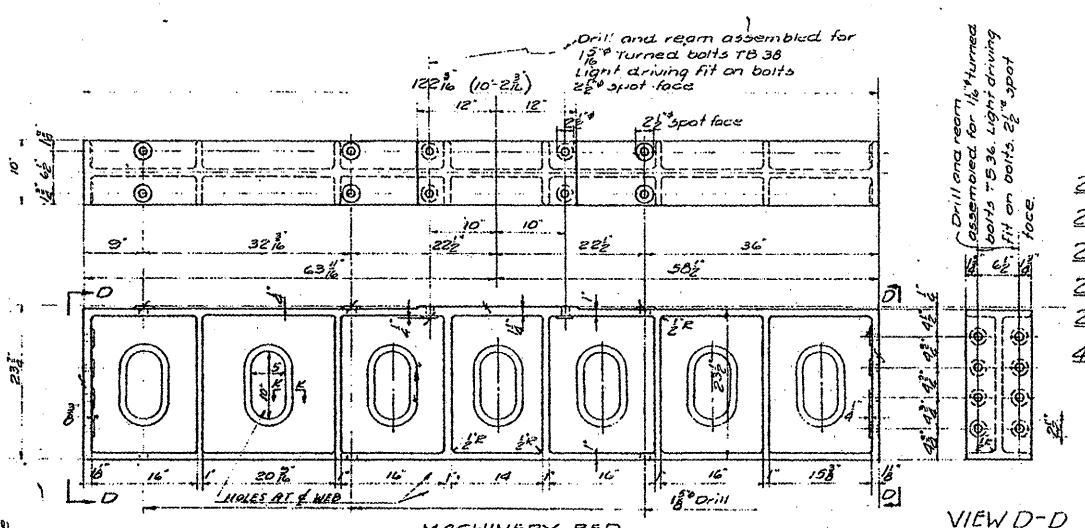 Drill and ream assembled for
1 5/16"ø Turned bolts TB 38
Light driving fit on bolts
2 1/2"ø spot face
122 3/16 (10'-2 3/16)
12" 12"
2 1/2"ø spot face
10"
6 1/2"
10" 10"
9" 32 3/16" 22 1/2" 22 1/2" 36"
63 11/16" 58 1/2"
D D
1"
1/2"R
23 3/4"
5"
10"
K K
23 1/2"
1/2"R 1/2"R
1"
1 1/8" 16" 1" 20 9/16" 1" 16" 1" 14 1" 16" 1" 16" 1" 15 3/8" 1 1/8
HOLES AT ℄ WEB
Drill
D D
MACHINERY BED
Drill and ream
assembled for 1 1/16"ø turned
bolts TB 36. Light driving
fit on bolts. 2 1/2"ø spot
face.
6 1/2"
4 3/4" 4 3/4"
VIEW D-D